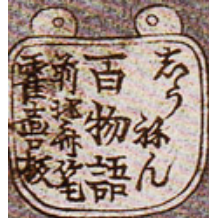 しうねん
百物語
前北斎筆
霍喜板